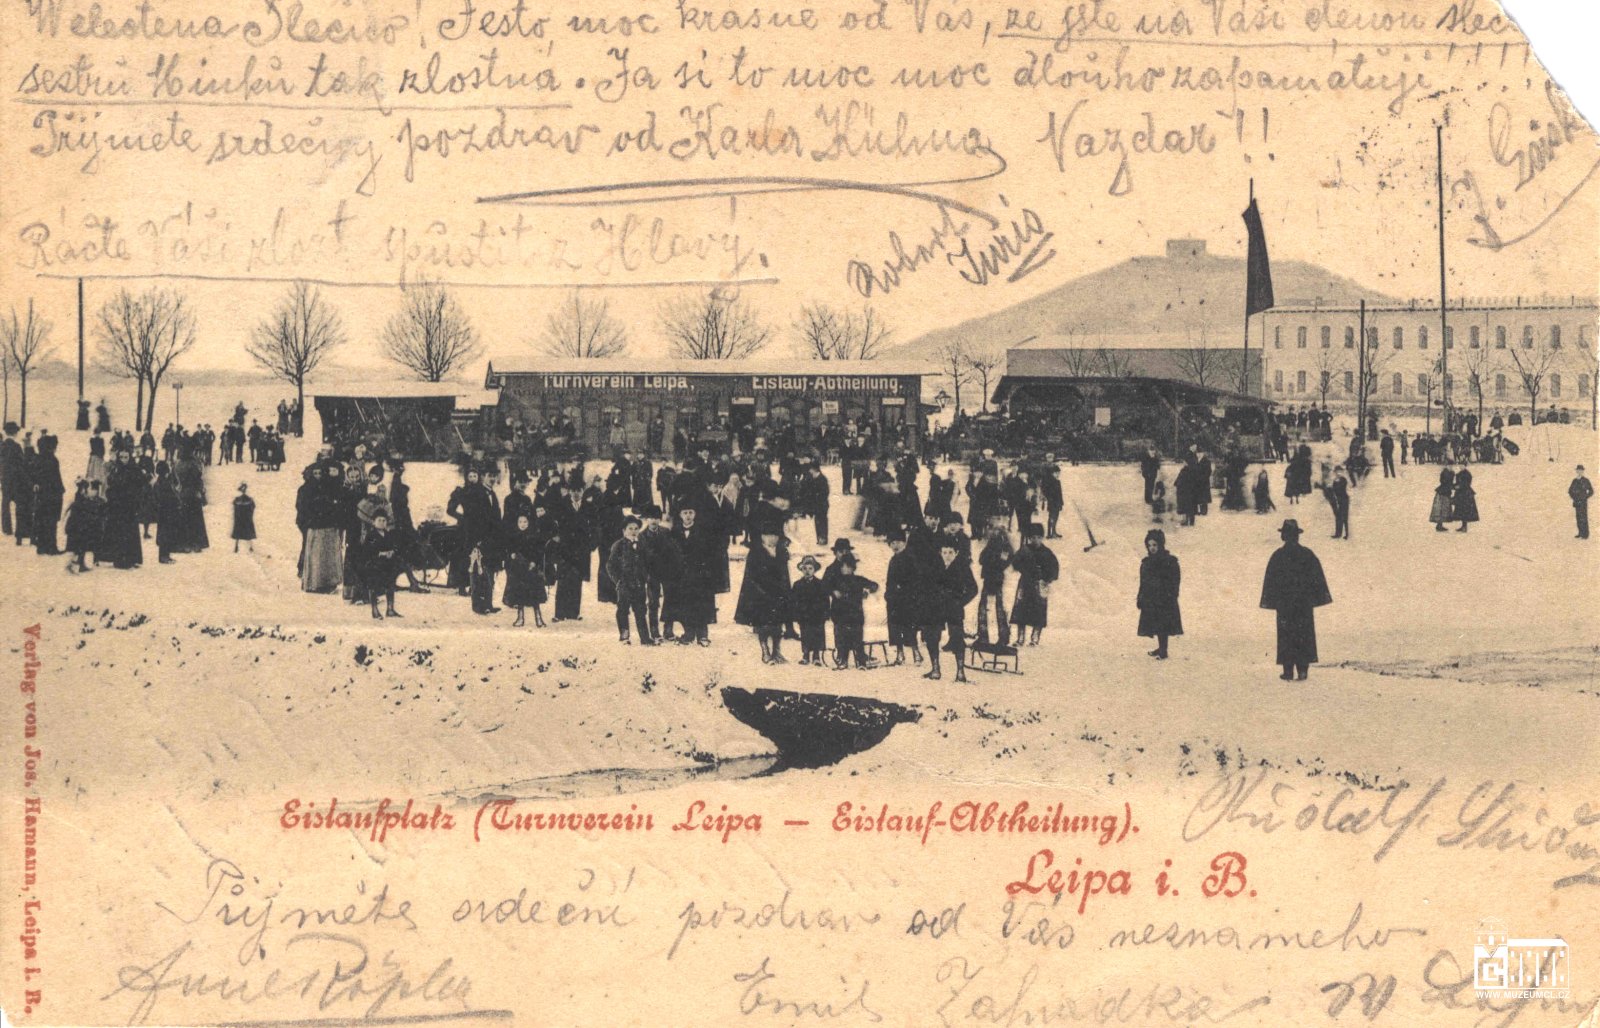 Welectena Slečno! Jesto moc krasne od Vas, ze jste na Vaši ctenou slec
sestru Minku tak zlostna. Ja si to moc moc dlouho zapamatuji!!!!!
Přijmete srdečny pozdrav od Karla Kühna Nazdar!!
Račte Vaši zlost spustit z Hlavy.
Robert
Juris
Turnverein Leipa, Eislauf-Abtheilung.
Verlag von Jos. Hamann, Leipa i. B.
Eislaufplatz (Turnverein Leipa — Eislauf-Abtheilung).
Rudolf
Leipa i. B.
Přijměte srdeční pozdrav od Vás neznameho
Emil Zahradka
WWW.MUZEUMCL.CZ